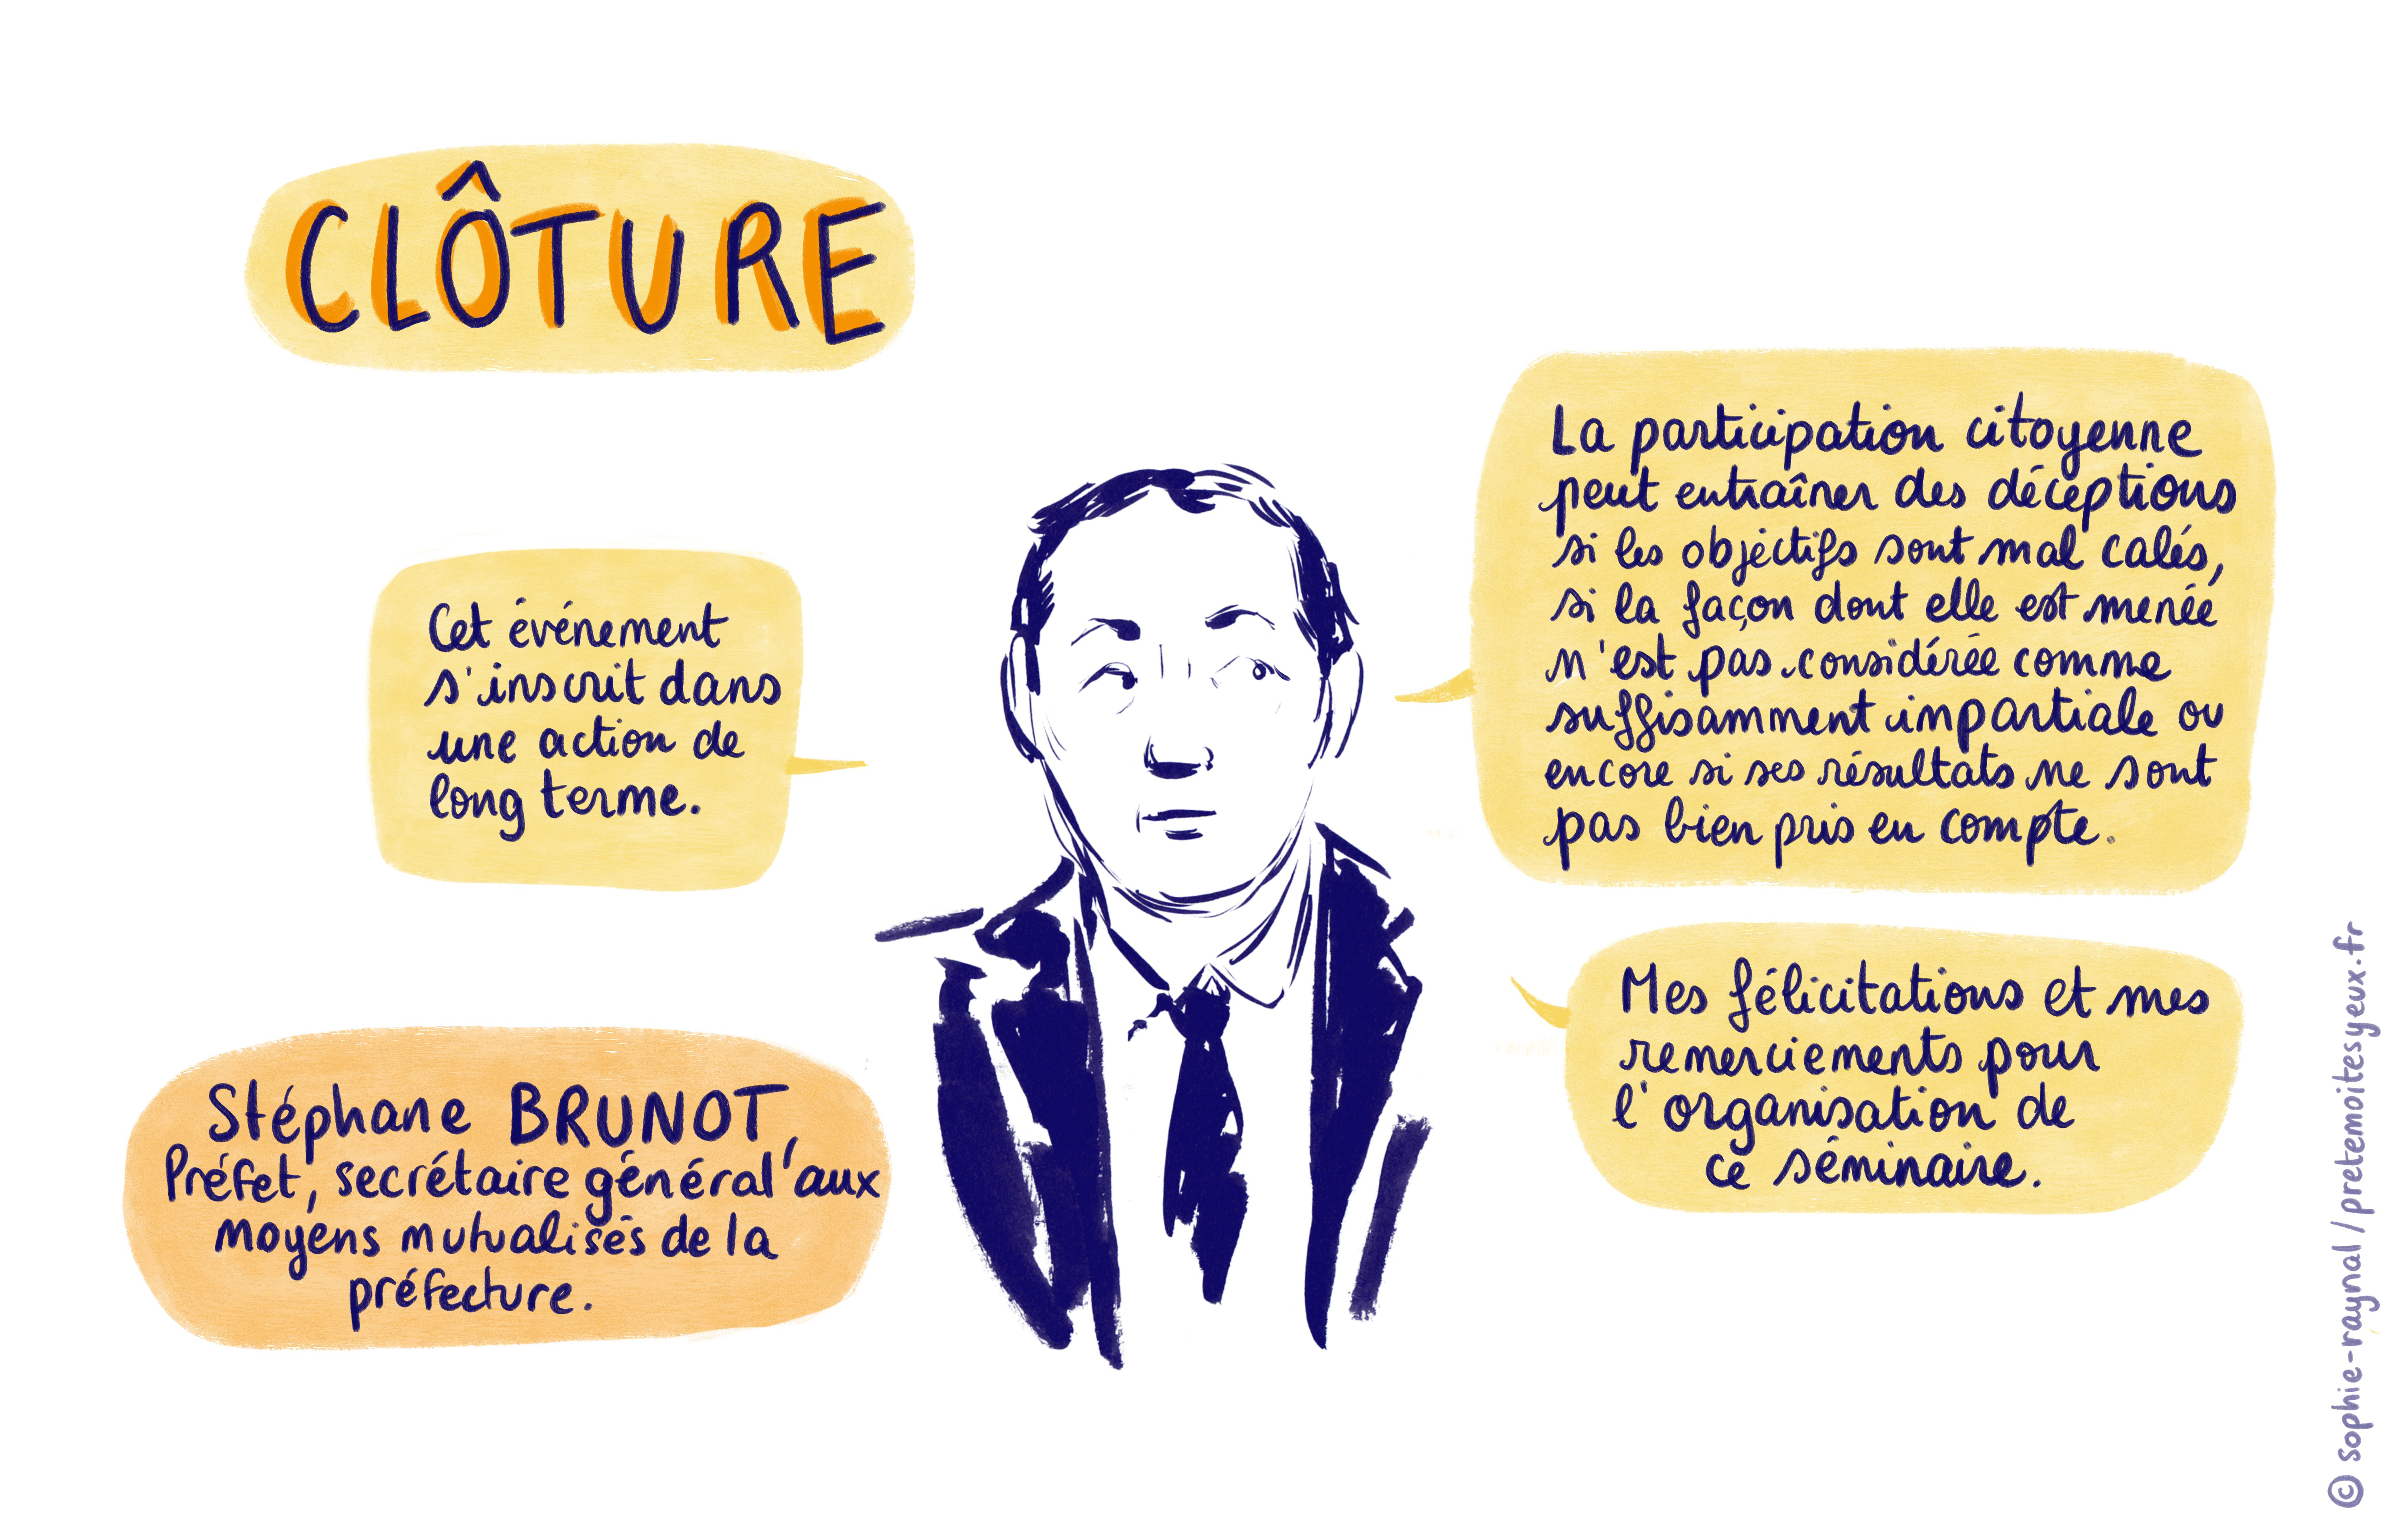 CLÔTURE
Cet événement
s'inscrit dans
une action de
long terme.
Stéphane BRUNOT,
Préfet, secrétaire général aux
moyens mutualisés de la
préfecture.
La participation citoyenne
peut entraîner des déceptions
si les objectifs sont mal calés,
si la façon dont elle est menée
n'est pas considérée comme
suffisamment impartiale ou
encore si ses résultats ne sont
pas bien pris en compte.
Mes félicitations et mes
remerciements pour
l'organisation de
ce séminaire.
© sophie-raynal / pretemoitesyeux.fr